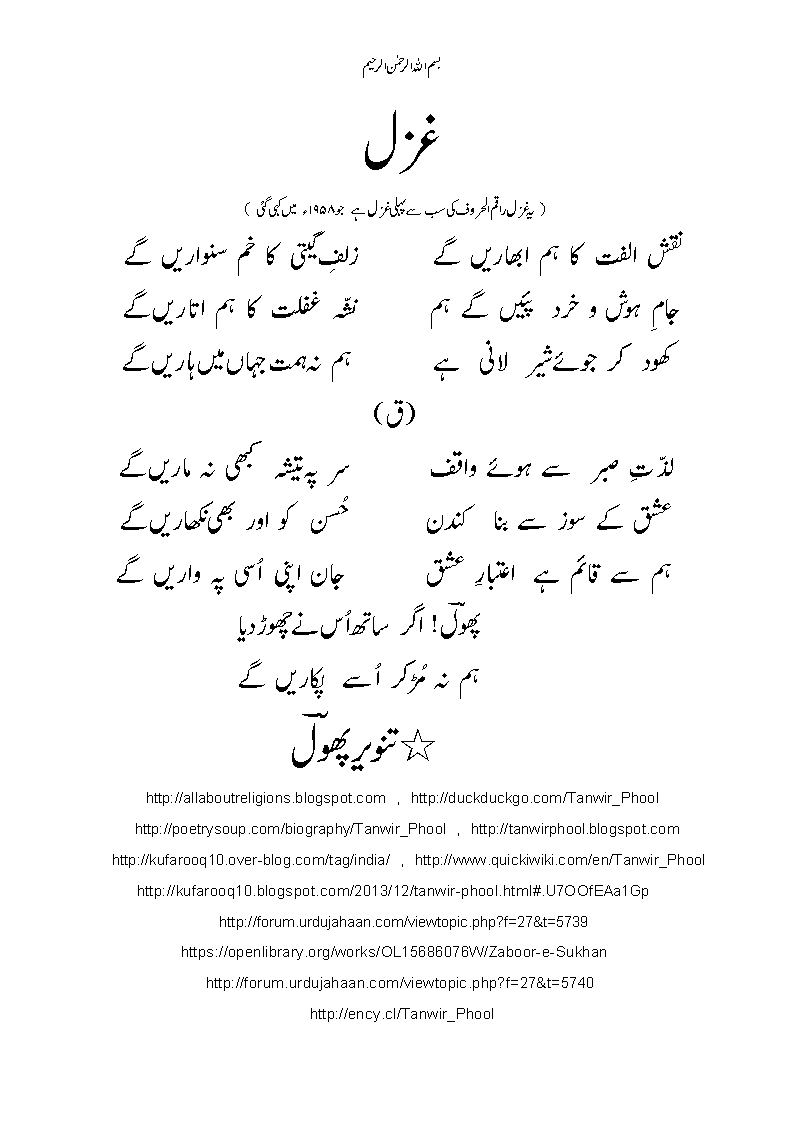 بسم اللہ الرحمٰن الرحیم
غزل
( یہ غزل راقم الحروف کی سب سے پہلی غزل ہے جو ۱۹۵۸ء میں کہی گئی )
نقش الفت کا ہم ابھاریں گے زلفِ گیتی کا خم سنواریں گے
جامِ ہوش و خرد پئیں گے ہم نشّہ غفلت کا ہم اتاریں گے
کھود کر جوئے شیر لانی ہے ہم نہ ہمت جہاں میں ہاریں گے
(ق)
لذّتِ صبر سے ہوئے واقف سر پہ تیشہ کبھی نہ ماریں گے
عشق کے سوز سے بنا کندن حُسن کو اور بھی نکھاریں گے
ہم سے قائم ہے اعتبارِ عشق جان اپنی اُسی پہ واریں گے
پھولؔ! اگر ساتھ اُس نے چھوڑ دیا
ہم نہ مُڑ کر اُسے پکاریں گے
☆ تنویر پھولؔ
http://allaboutreligions.blogspot.com , http://duckduckgo.com/Tanwir_Phool
http://poetrysoup.com/biography/Tanwir_Phool , http://tanwirphool.blogspot.com
http://kufarooq10.over-blog.com/tag/india/ , http://www.quickiwiki.com/en/Tanwir_Phool
http://kufarooq10.blogspot.com/2013/12/tanwir-phool.html#.U7OOfEAa1Gp
http://forum.urdujahaan.com/viewtopic.php?f=27&t=5739
https://openlibrary.org/works/OL15686076W/Zaboor-e-Sukhan
http://forum.urdujahaan.com/viewtopic.php?f=27&t=5740
http://ency.cl/Tanwir_Phool